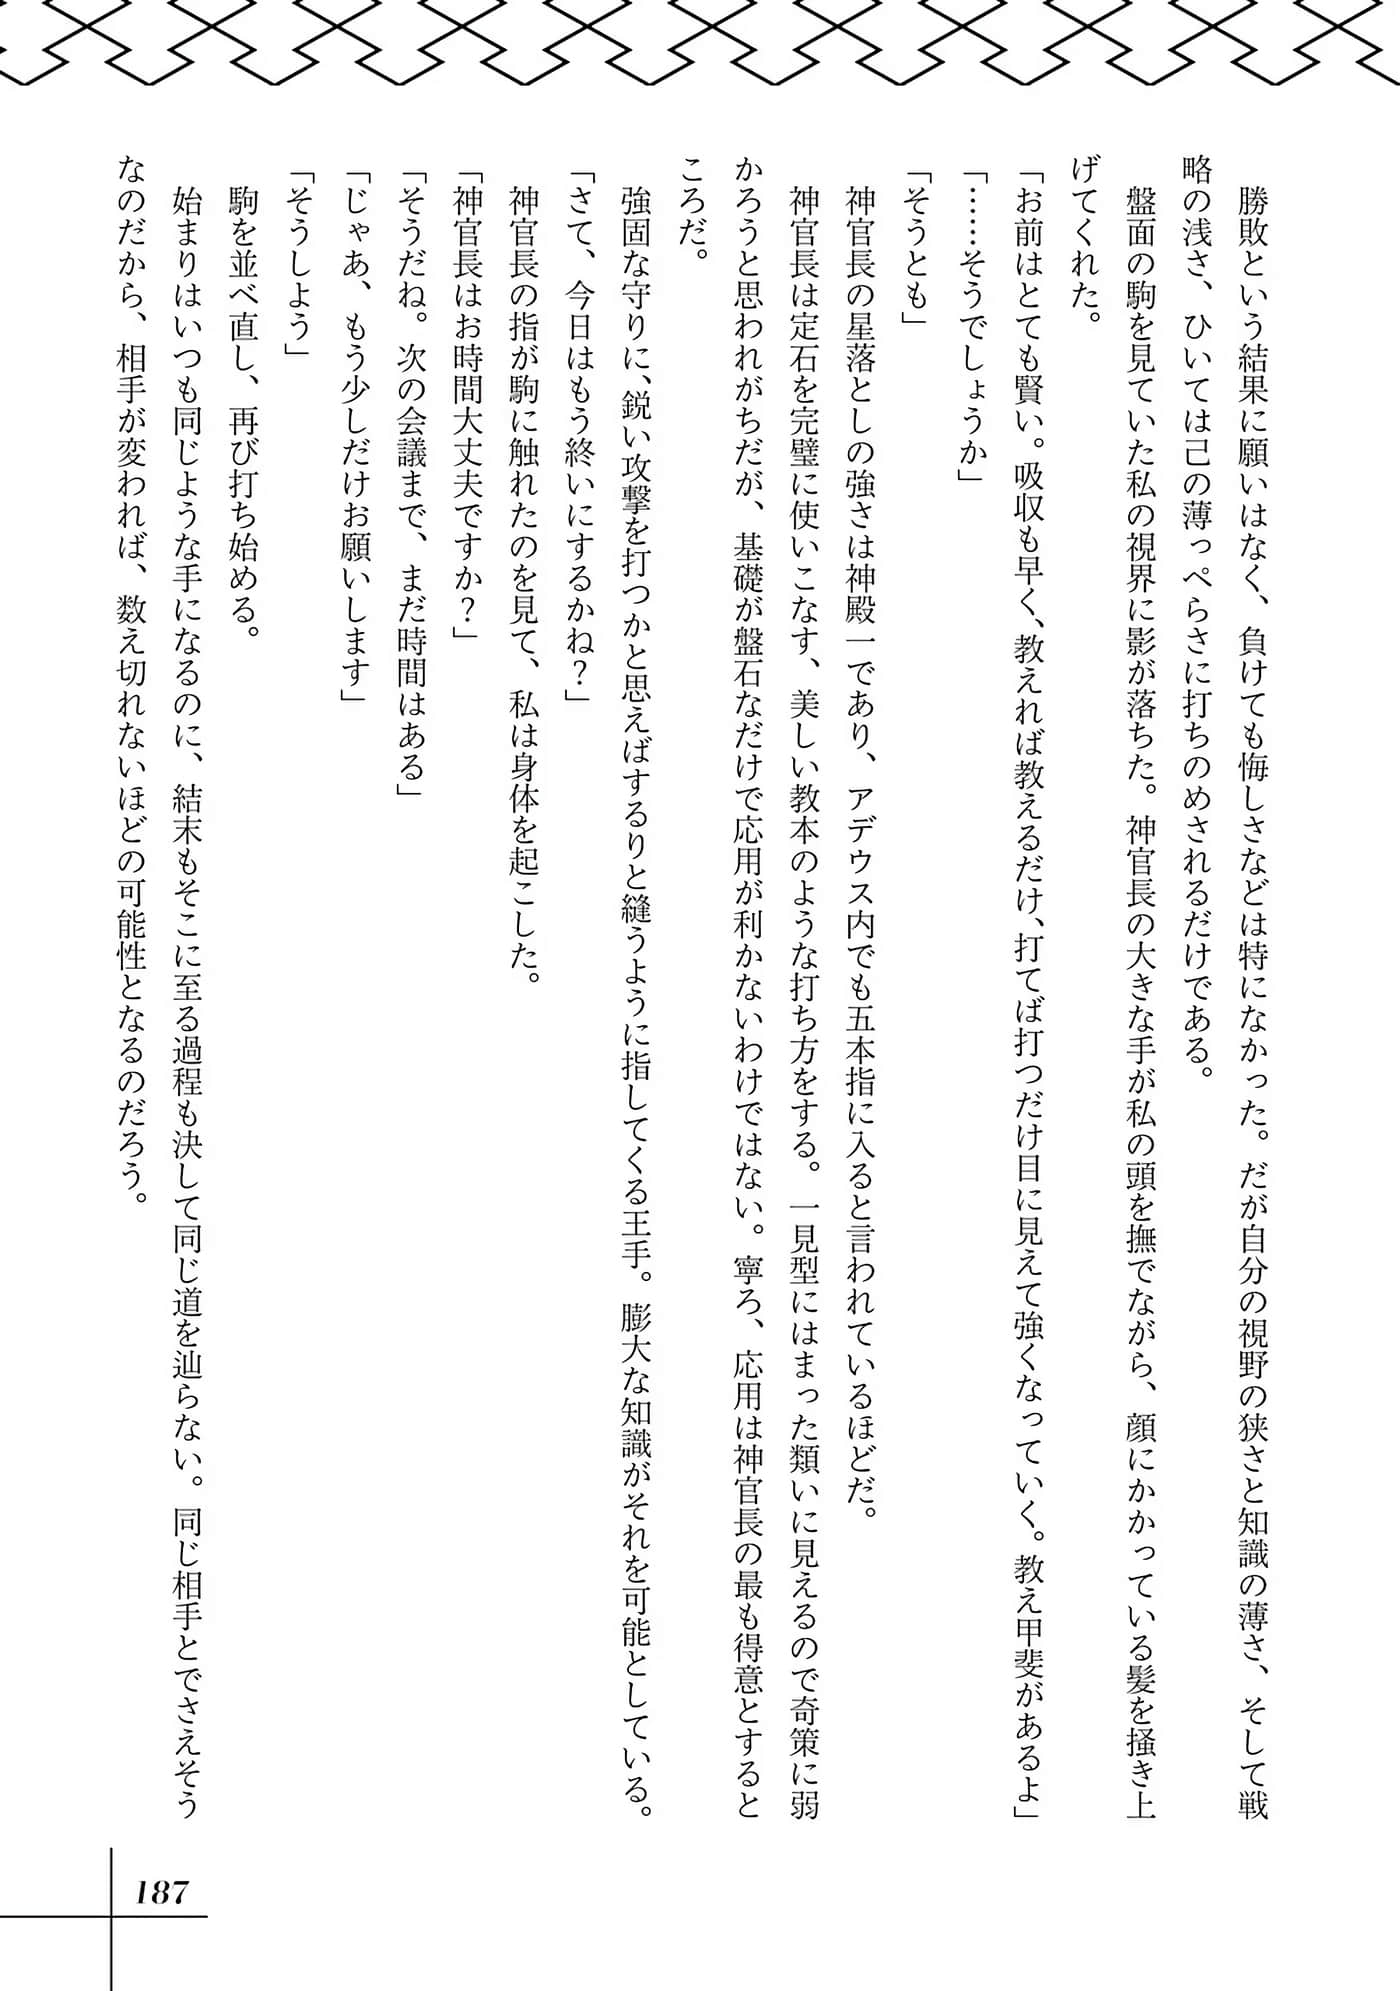 勝敗という結果に願いはなく、負けても悔しさなどは特になかった。だが自分の視野の狭さと知識の薄さ、そして戦
略の浅さ、ひいては己の薄っぺらさに打ちのめされるだけである。
　盤面の駒を見ていた私の視界に影が落ちた。神官長の大きな手が私の頭を撫でながら、顔にかかっている髪を掻き上
げてくれた。
「お前はとても賢い。吸収も早く、教えれば教えるだけ、打てば打つだけ目に見えて強くなっていく。教え甲斐があるよ」
「……そうでしょうか」
「そうとも」
　神官長の星落としの強さは神殿一であり、アデウス内でも五本指に入ると言われているほどだ。
　神官長は定石を完璧に使いこなす、美しい教本のような打ち方をする。一見型にはまった類いに見えるので奇策に弱
かろうと思われがちだが、基礎が盤石なだけで応用が利かないわけではない。寧ろ、応用は神官長の最も得意とすると
ころだ。
　強固な守りに、鋭い攻撃を打つかと思えばするりと縫うように指してくる王手。膨大な知識がそれを可能としている。
「さて、今日はもう終いにするかね？」
　神官長の指が駒に触れたのを見て、私は身体を起こした。
「神官長はお時間大丈夫ですか？」
「そうだね。次の会議まで、まだ時間はある」
「じゃあ、もう少しだけお願いします」
「そうしよう」
　駒を並べ直し、再び打ち始める。
　始まりはいつも同じような手になるのに、結末もそこに至る過程も決して同じ道を辿らない。同じ相手とでさえそう
なのだから、相手が変われば、数え切れないほどの可能性となるのだろう。
187